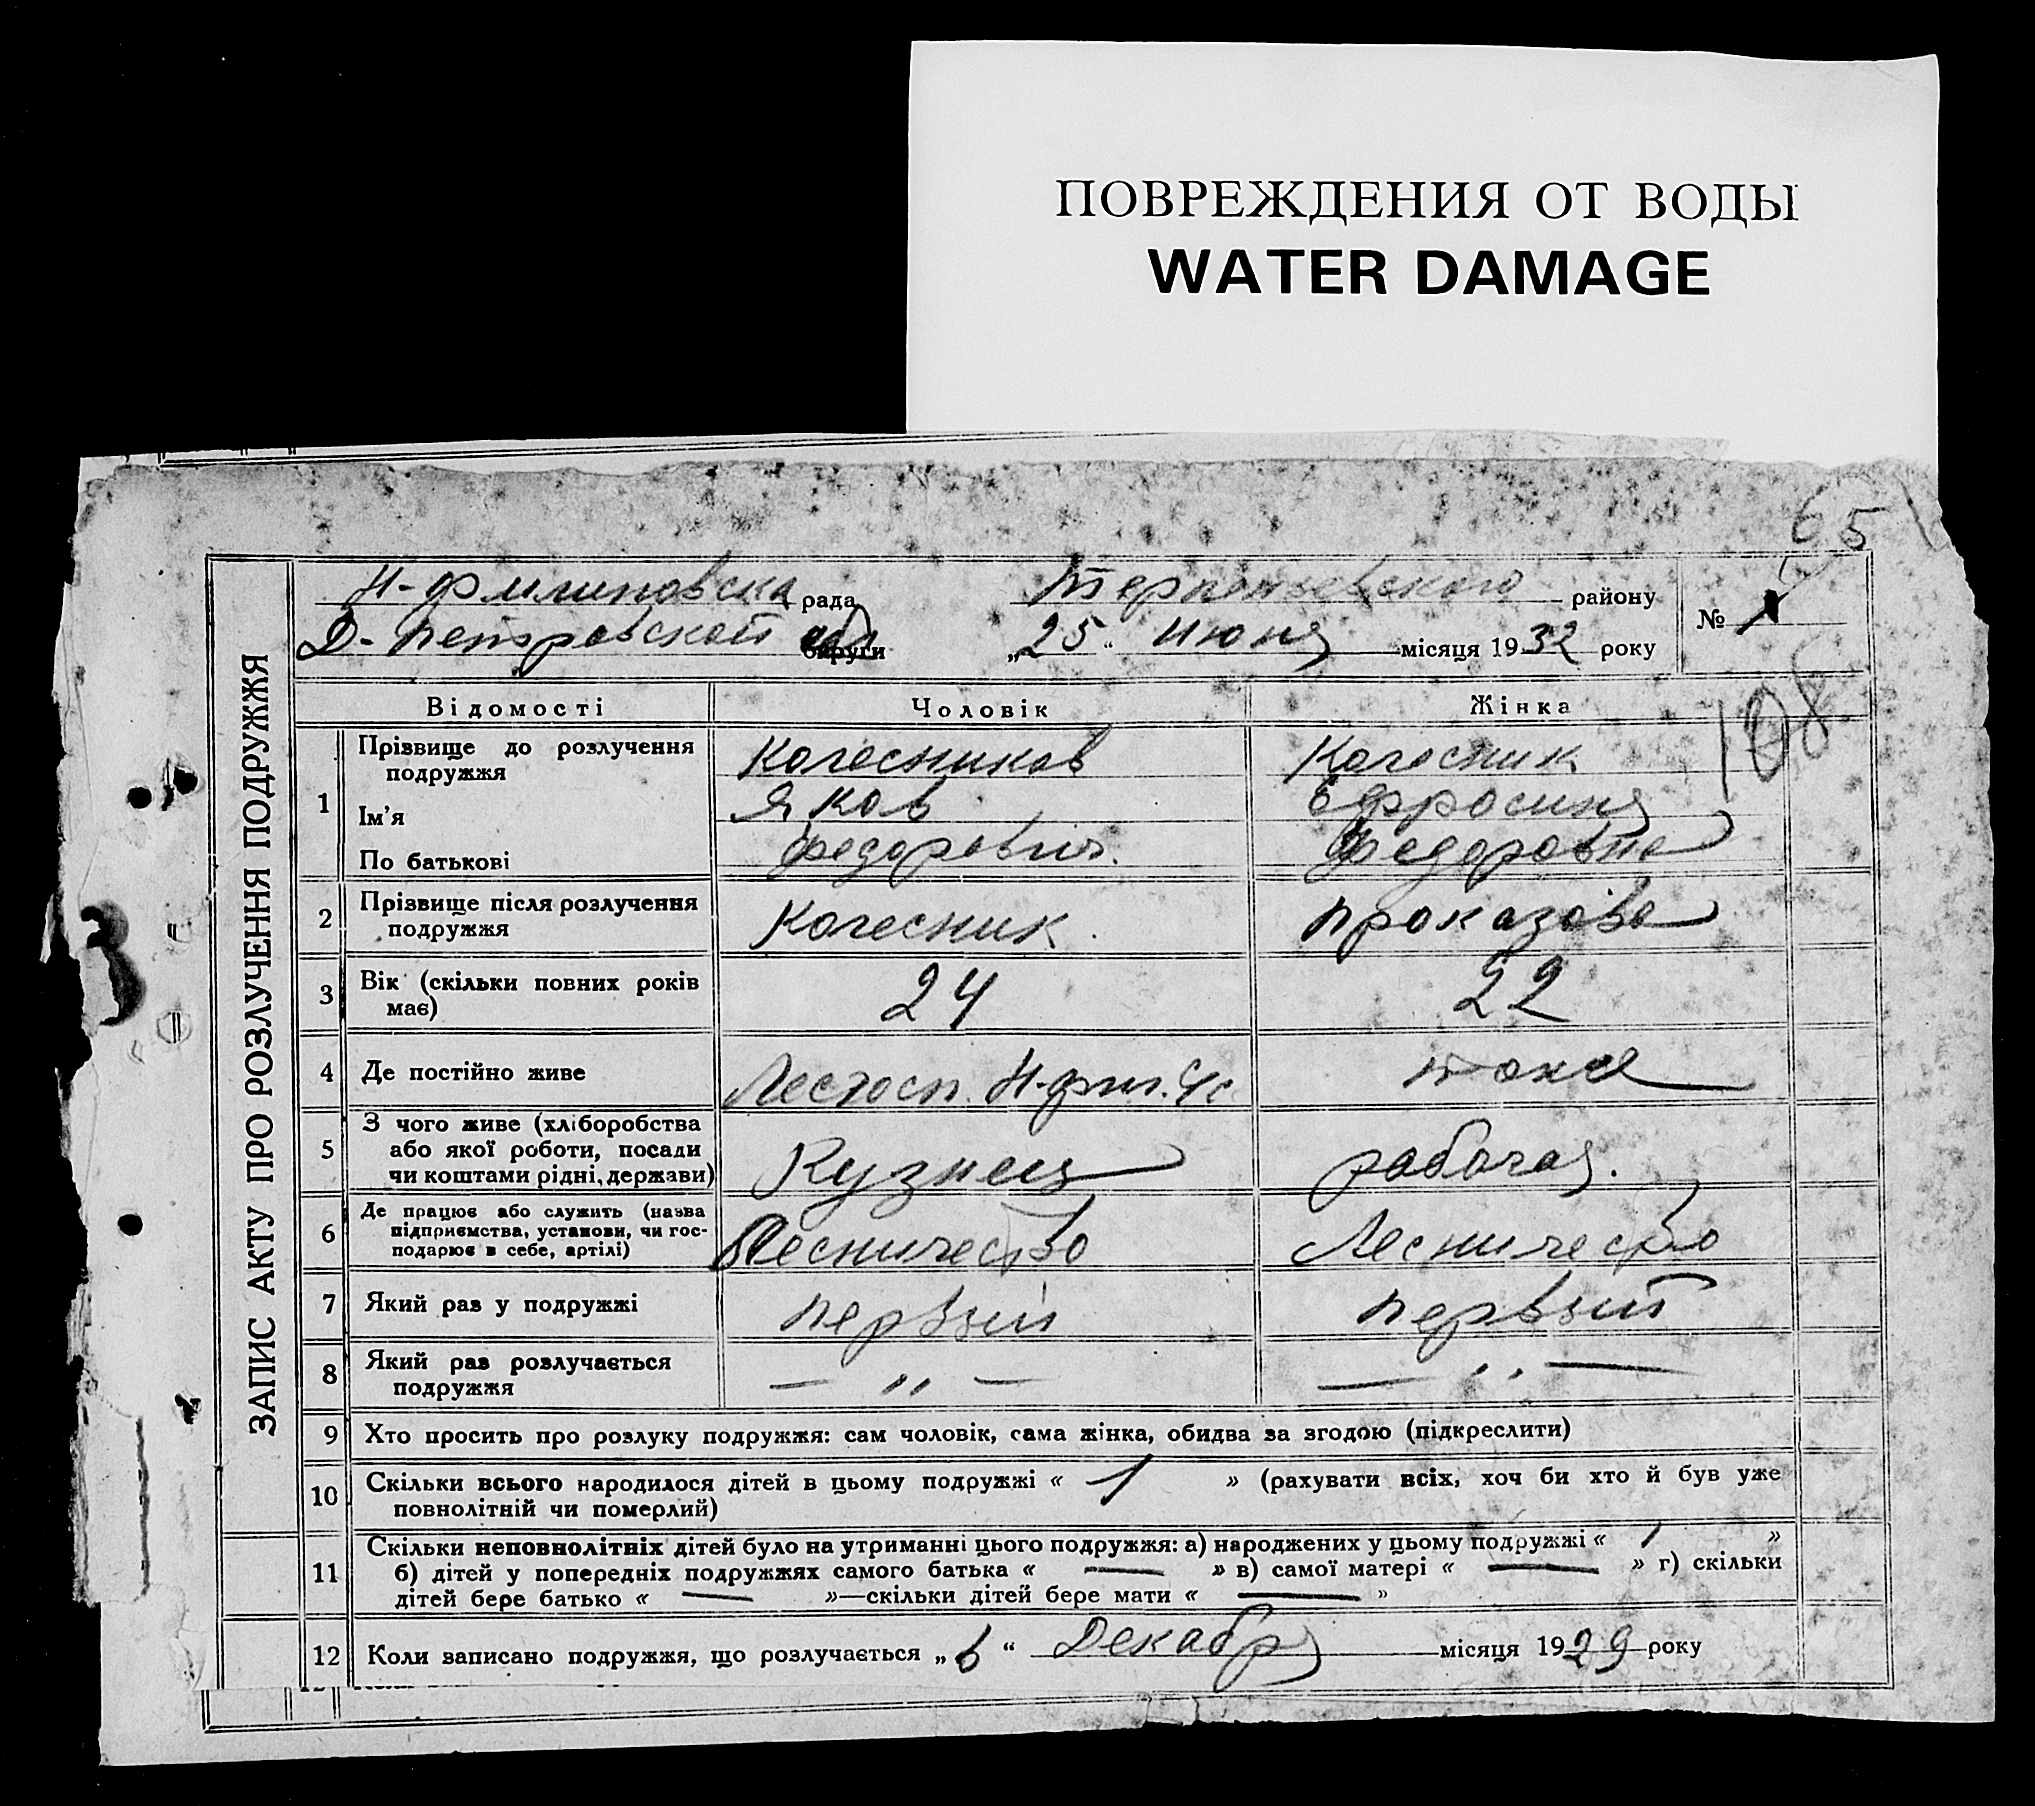 ПОВРЕЖДЕНИЯ ОТ ВОДЫ
WATER DAMAGE
65
Н-Филиповска рада Терпеньевского району №
Д-Петровской обл округи „25“ Июня місяця 1932 року
108
ЗАПИС АКТУ ПРО РОЗЛУЧЕННЯ ПОДРУЖЖЯ
Відомості Чоловік Жінка
1 Прізвище до розлучення подружжя Колесников Колесник
Ім'я Яков Ефросиня
По батькові Федорович. Федоровна
2 Прізвище після розлучення подружжя Колесник. Проказова
3 Вік (скільки повних років має) 24 22
4 Де постійно живе Лесхосп. Н-фил. тоже
5 З чого живе (хліборобства або якої роботи, посади чи коштами рідні, держави) Кузнец рабочая.
6 Де працює або служить (назва підприємства, установи, чи господарює в себе, артілі) Лесничество Лесничество
7 Який раз у подружжі первый первый
8 Який раз розлучається подружжя — ,, — — ,, —
9 Хто просить про розлуку подружжя: сам чоловік, сама жінка, обидва за згодою (підкреслити)
10 Скільки всього народилося дітей в цьому подружжі « 1 » (рахувати всіх, хоч би хто й був уже
повнолітній чи померлий)
11 Скільки неповнолітніх дітей було на утриманні цього подружжя: а) народжених у цьому подружжі « 1 »
б) дітей у попередніх подружжях самого батька « — » в) самої матері « — » г) скільки
дітей бере батько « — »—скільки дітей бере мати « — »
12 Коли записано подружжя, що розлучається „в“ Декабря місяця 1929 року